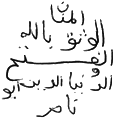 المنان
الوثق بالله
الفتح
الدنيا الدين ابو
ناصر